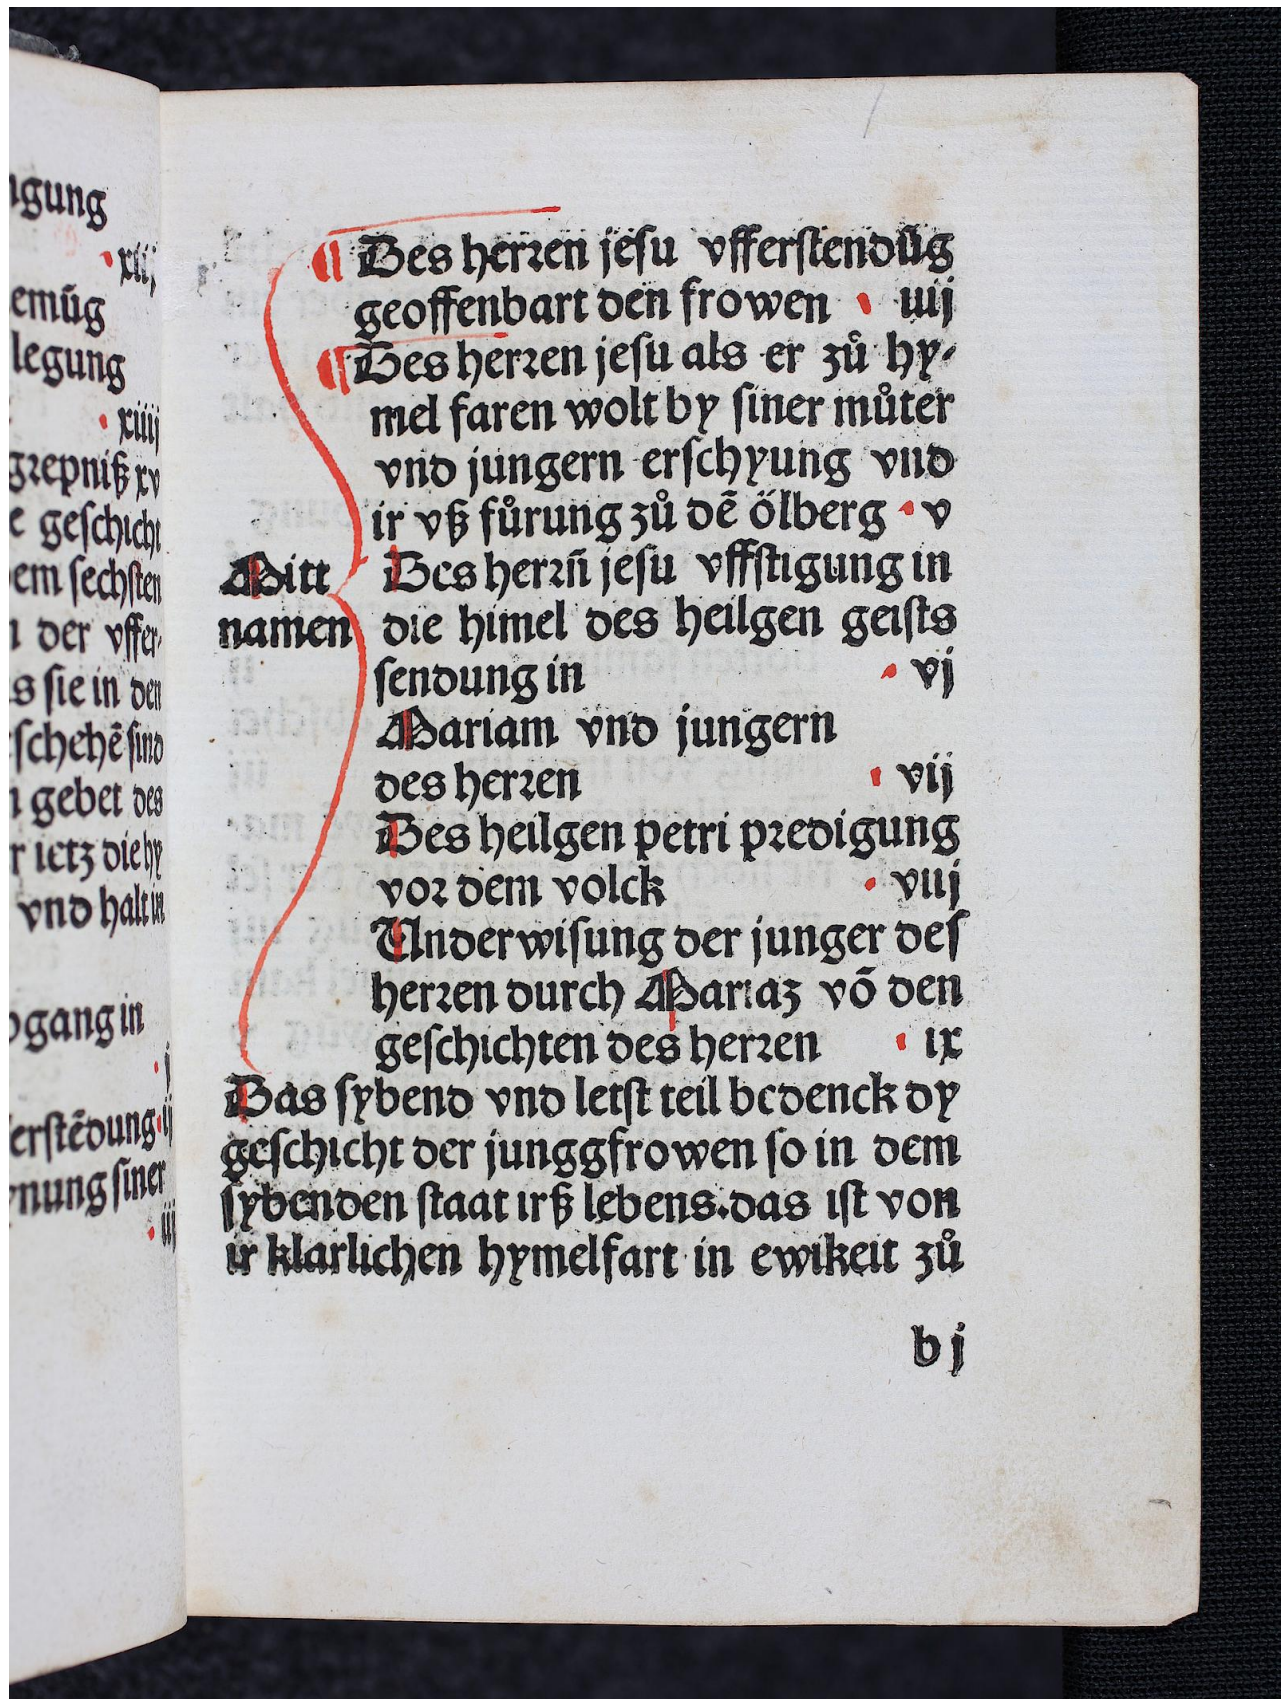 ngung
·xiij
emūg
legung
·xiiij
grepniß xv
e geschicht
em sechsten
n der vffer-
s sie in den
schehē sind
n gebet des
r ietz die hy
vnd halt in
gang in
·j
erstēdung·ij
ynung siner
·iij
¶ Des herren jesu vfferstendūg
geoffenbart den frowen · iiij
¶ Des herren jesu als er zů hy-
mel faren wolt by siner můter
vnd jungern erschyung vnd
ir vß fůrung zů dē ölberg · v
Mitt
namen
Des herrn̄ jesu vffstigung in
die himel des heilgen geists
sendung in · vj
Mariam vnd jungern
des herren · vij
Des heilgen petri predigung
vor dem volck · viij
Underwisung der junger des
herren durch Mariaz vō den
geschichten des herren · ix
Das sybend vnd letst teil bedenck dy
geschicht der junggfrowen so in dem
sybenden staat irß lebens. das ist von
ir klarlichen hymelfart in ewikeit zů
b j